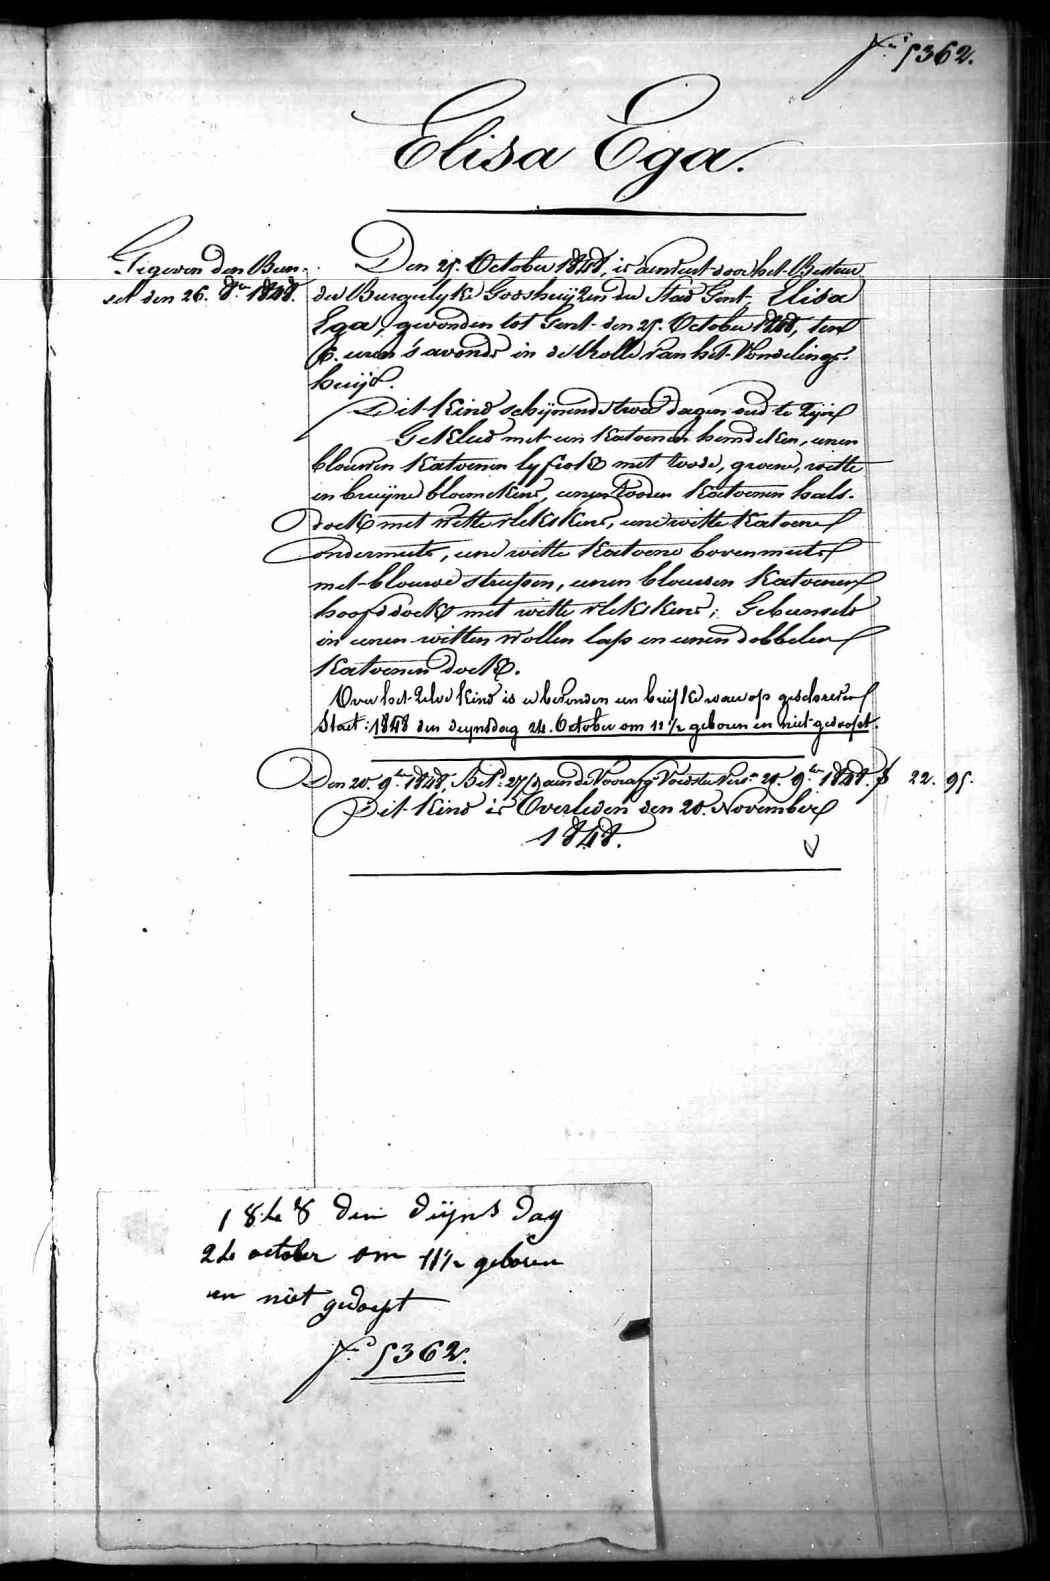 N.° 5362.
Elisa Ega.
Gegeven den Bun-
sel den 26. 8.er 1848.
Den 25. October 1848, is aenveert door het Bestuer
der Burgerlyke Godshuijzen der Stad Gent, Elisa
Ega, gevonden tot Gent den 25. October 1848, ten
6. uren s'avonds in de Rolle van het Vondelings-
huijs.
Dit Kind schijnende twee dagen oud te zijn
Gekleed met een Katoenen hemdeken, eenen
blauwen Katoenen lyfrok met roode, groene, witte
en bruijne bloemekens, eenen rooden Katoenen hals-
doek met witte vlekskens, eene witte Katoene
ondermuts, eene witte Katoene bovenmuts
met blauwe streepen, eenen blauwen Katoenen
hoofddoek met witte vlekskens; Gebunseld
in eenen witten wollen lap en eenen dobbelen
Katoenen doek.
Over het zelve Kind is er bevonden een briefke waer op geschreven
Staet: 1848 den deynsdag 24. October om 11 1/2 geboren en niet gedoopt.
Den 20. 9.er 1848, Bet. 27/ aen de Voedster 20. 9.er 1848. f 22. 95.
Dit Kind is Overleden den 20. November
1848.
1848 den dijnsdag
24 october om 11 1/2 geboren
en niet gedoept
N.° 5362.